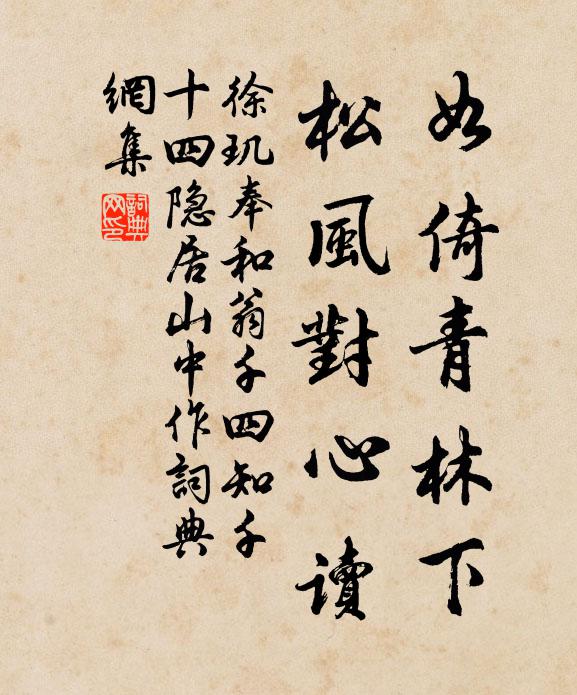 如倚青林下
松風對心讀
徐玑奉和翁千四知千
十四隐居山中作詞典
網集
詞典網印